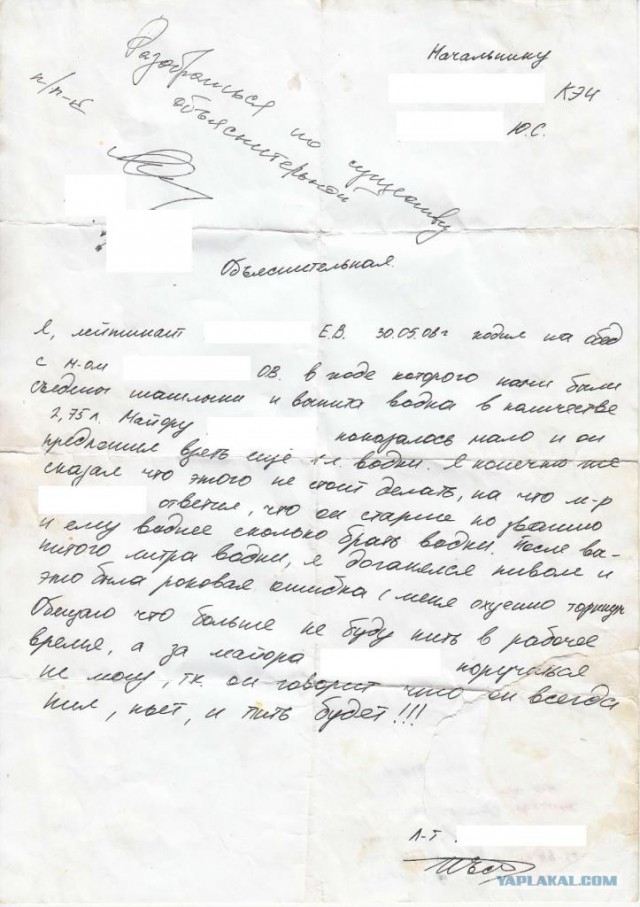 Начальнику
КЭЧ
Ю.С.
Разобраться по существу
объяснительной
Объяснительная.
Я, лейтинант Е.В. 30.05.08г ходил на обед
с м-ом О.В. в ходе которого нами были
съедены шашлыки и выпита водка в количестве
2,75л. Майору показалось мало и он
предложил взять ещё 1л. водки. Я конечно же
сказал что этого не стоит делать, на что м-р
ответил, что он старше по званию
и ему виднее сколько брать водки. После вы-
питого литра водки, я догонялся пивом и
это была роковая ошибка, меня охуенно торкнул
Обещаю что больше не буду пить в рабочее
время, а за майора поручиться
не могу, т.к. он говорит что он всегда
пил, пьет, и пить будет!!!
Л-т
YAPLAKAL.COM